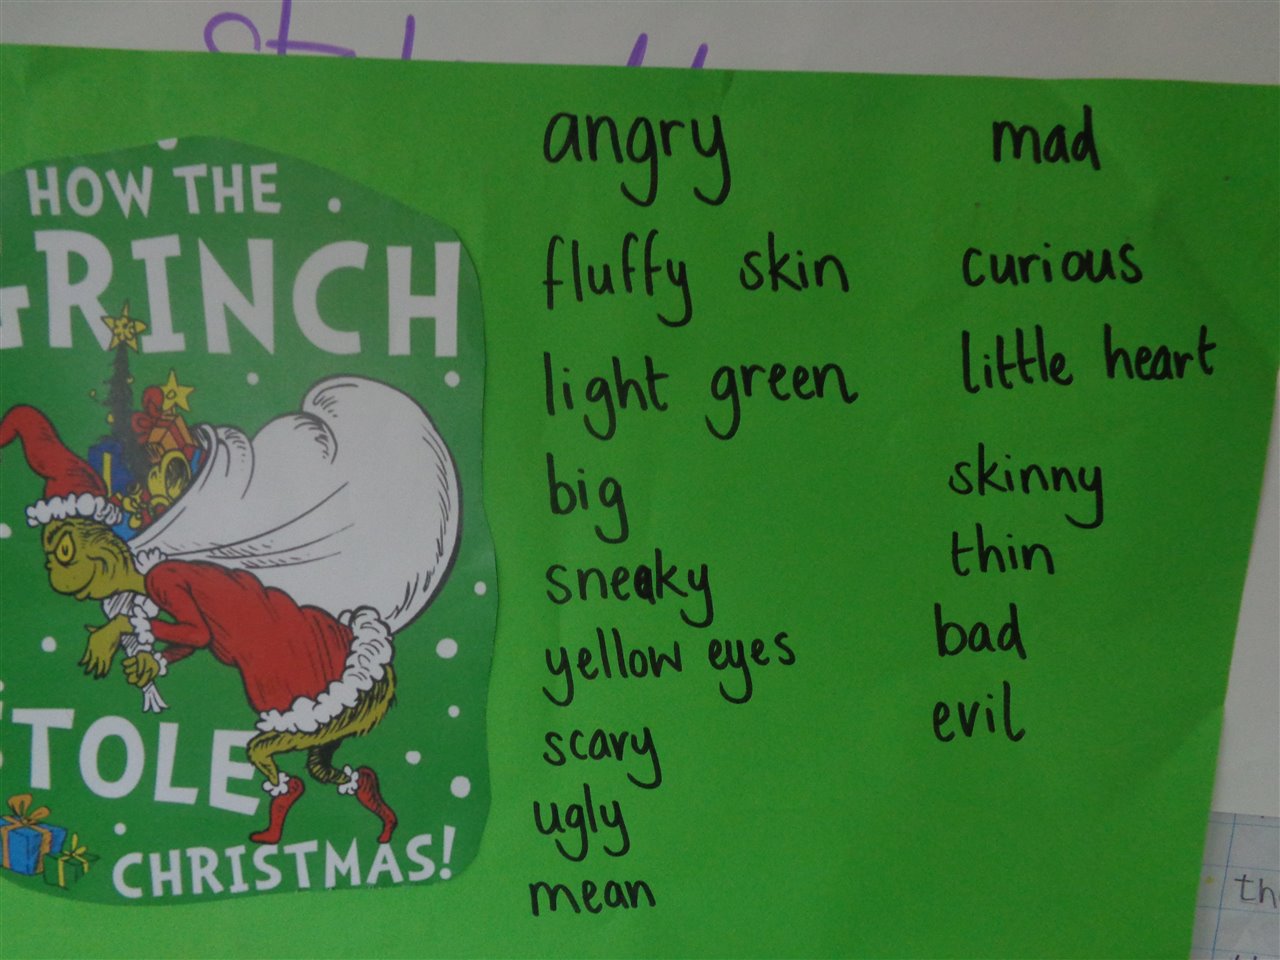 HOW THE
GRINCH
STOLE
CHRISTMAS!
angry
fluffy skin
light green
big
sneaky
yellow eyes
scary
ugly
mean
mad
curious
little heart
skinny
thin
bad
evil